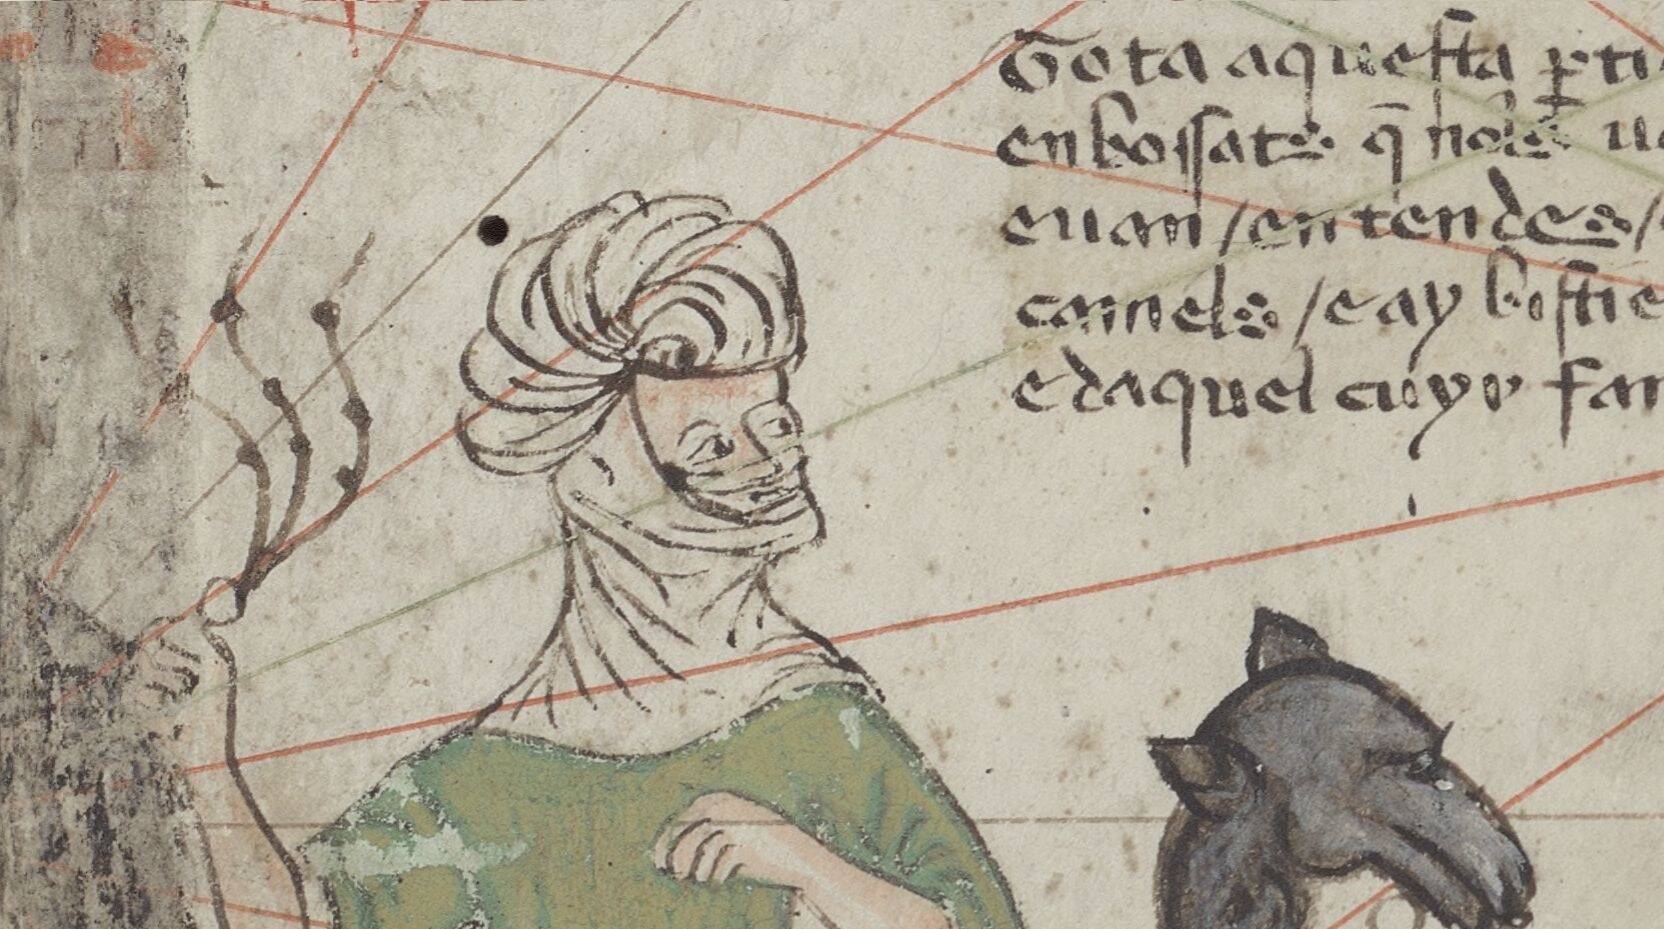 Tota aquesta ꝑti
enbossats q̄ nols ue
euan / entendes /
camels / e ay bisties
e daquel cuyr fan